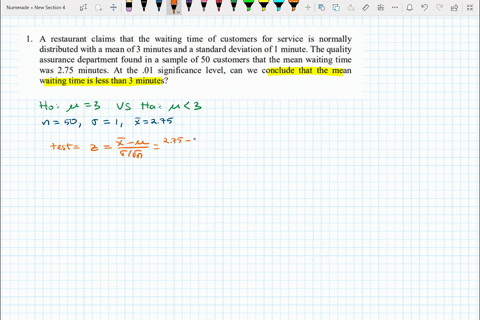 Numerade » New Section 4
1. A restaurant claims that the waiting time of customers for service is normally
distributed with a mean of 3 minutes and a standard deviation of 1 minute. The quality
assurance department found in a sample of 50 customers that the mean waiting time
was 2.75 minutes. At the .01 significance level, can we conclude that the mean
waiting time is less than 3 minutes?
Ho: μ = 3 VS Ha: μ < 3
n = 50, σ = 1, x̄ = 2.75
test = z = x̄ - μ / σ/√n = 2.75 -